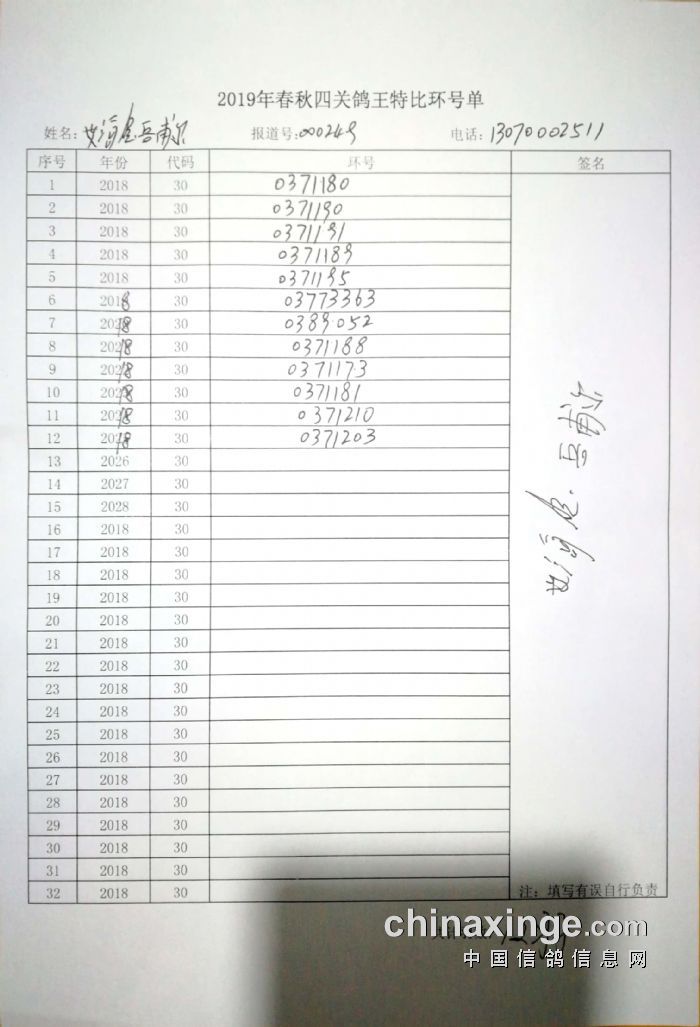 2019年春秋四关鸽王特比环号单
姓名: 报道号:000249 电话: 13070002511
序号 年份 代码 环号 签名
1 2018 30 0371180
2 2018 30 0371190
3 2018 30 0371191
4 2018 30 0371189
5 2018 30 0371195
6 2018 30 03773363
7 2018 30 0389052
8 2018 30 0371188
9 2018 30 0371173
10 2018 30 0371181
11 2018 30 0371210
12 2018 30 0371203
13 2026 30
14 2027 30
15 2028 30
16 2018 30
17 2018 30
18 2018 30
19 2018 30
20 2018 30
21 2018 30
22 2018 30
23 2018 30
24 2018 30
25 2018 30
26 2018 30
27 2018 30
28 2018 30
29 2018 30
30 2018 30
31 2018 30
32 2018 30
注: 填写有误自行负责
chinaxinge.com
中国信鸽信息网